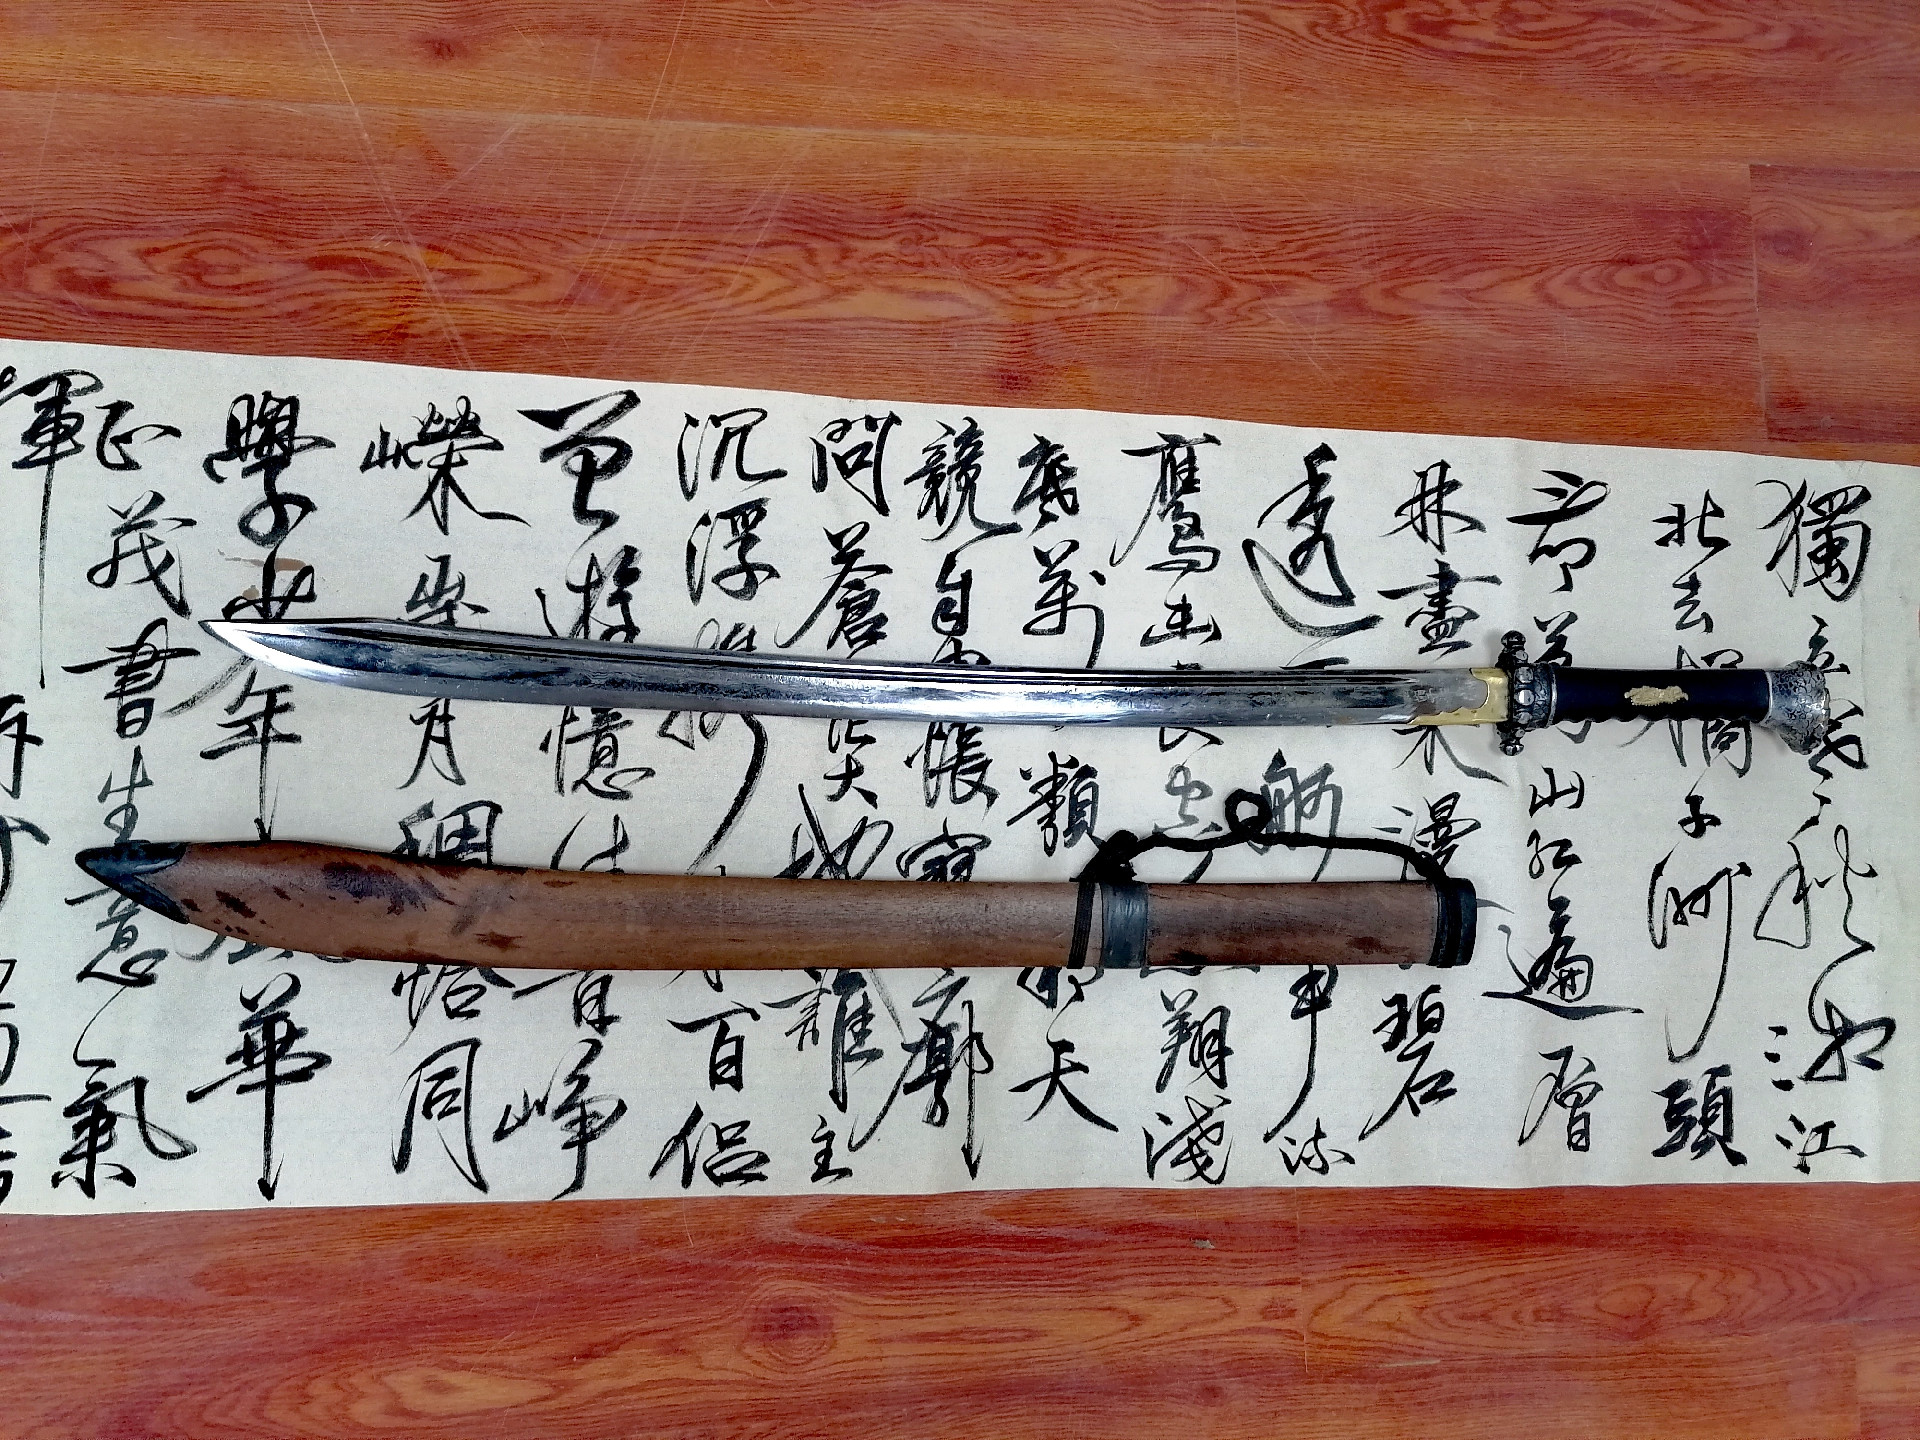 獨立寒秋湘江
北去橘子洲頭
看萬山紅遍層
林盡染漫碧
透百舸爭流
鷹擊長空翔淺
底萬類霜天
競自由悵寥廓
問蒼茫大地誰主
沉浮攜百侶
曾遊憶往昔崢
嶸歲月稠恰同
學少年華
正茂書生意氣
揮斥